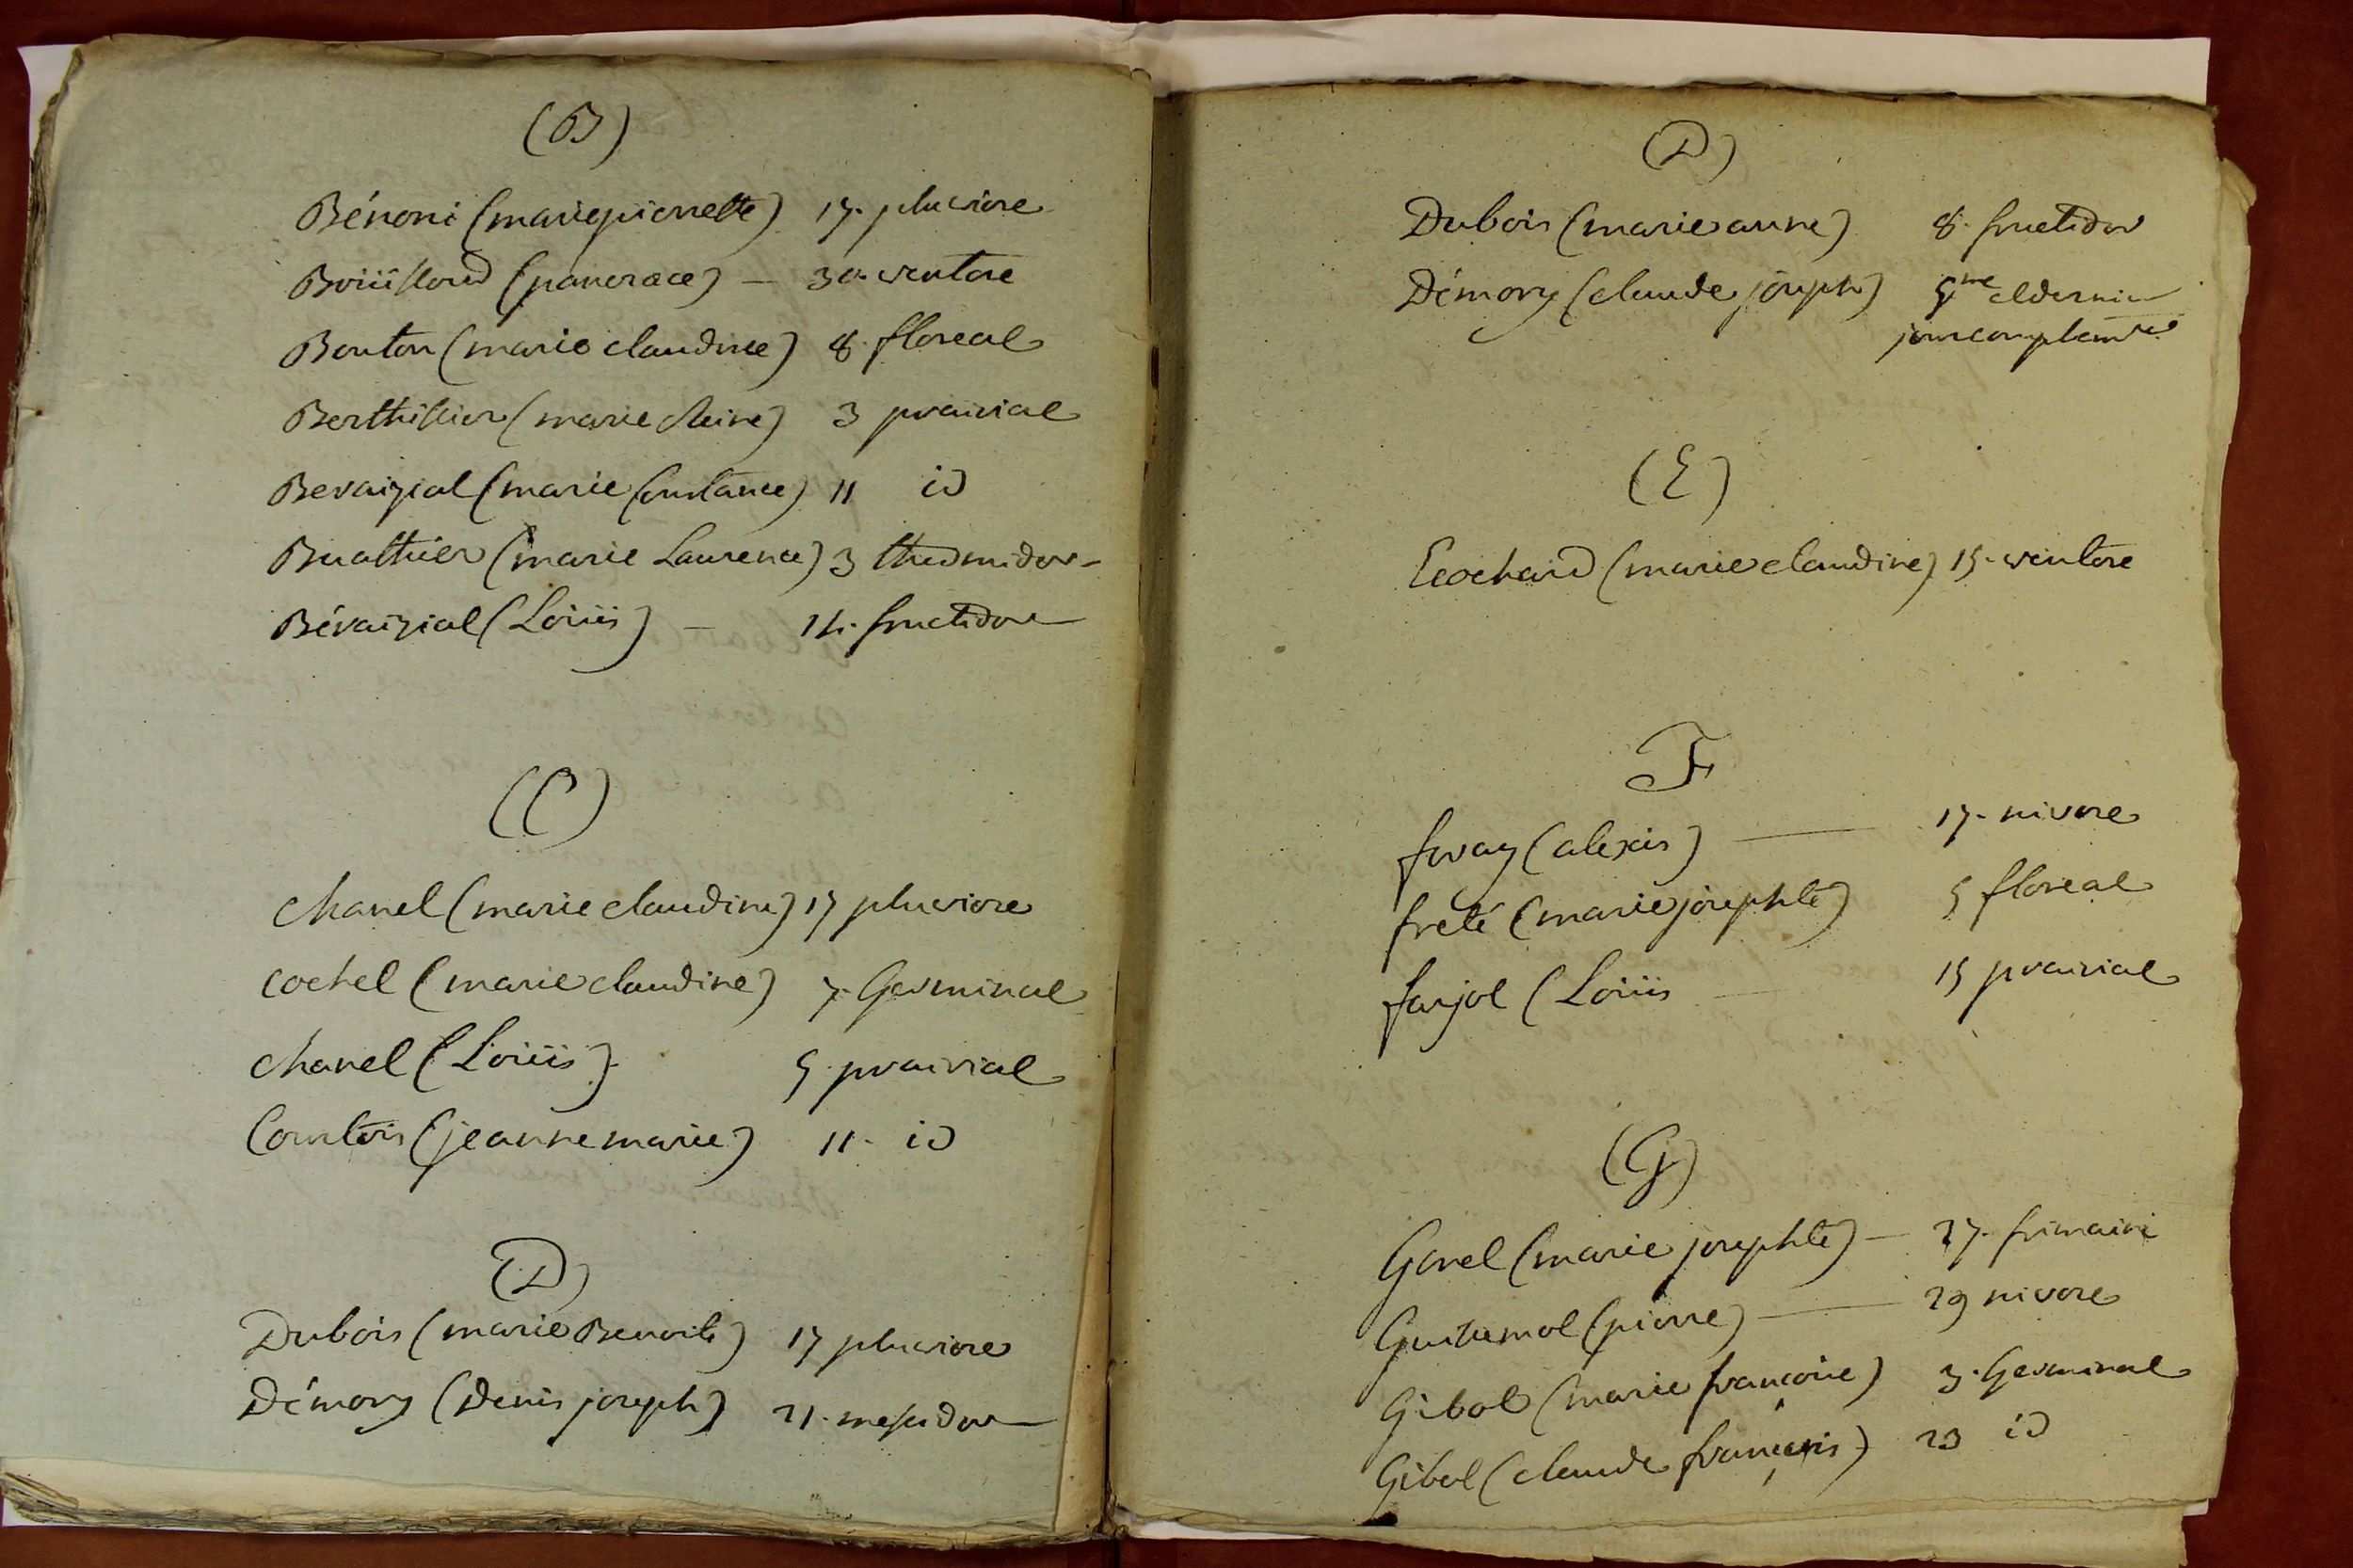 (B)
Bénoni (marie pierrette) 17. pluviose
Boüilloud (pancrace) — 30. ventose
Bouton (marie claudine) 8. floreal
Berthillier (marie Claire) 3 prairial
Bevaizial (marie Constance) 11 id
Buathier (marie Laurence) 3 thermidor
Bévaizial (Loüis) — 14. fructidor
(C)
Chanel (marie claudine) 17 pluviose
Cochel (marie claudine) 7. Germinal
Chanel (Loüis) 5. prairial
Comtois (jeanne marie) 11. id
(D)
Dubois (marie Benoite) 17 pluviose
Démory (Denis joseph) 21. messidor
(D)
Dubois (marie anne) 8. fructidor
Démory (claude joseph) 5me et dernier
jour complemre
(E)
Ecochard (marie claudine) 15. ventose
F
foray (alexis) — 17. nivose
freté (marie josephte) 5 floreal
farjol (Loüis — 15 prairial
(G)
Gorel (marie josephte) — 27. frimaire
(pierre) — 29 nivose
Gibol (marie françoise) 3. Germinal
Gibol (claude françois) 23 id